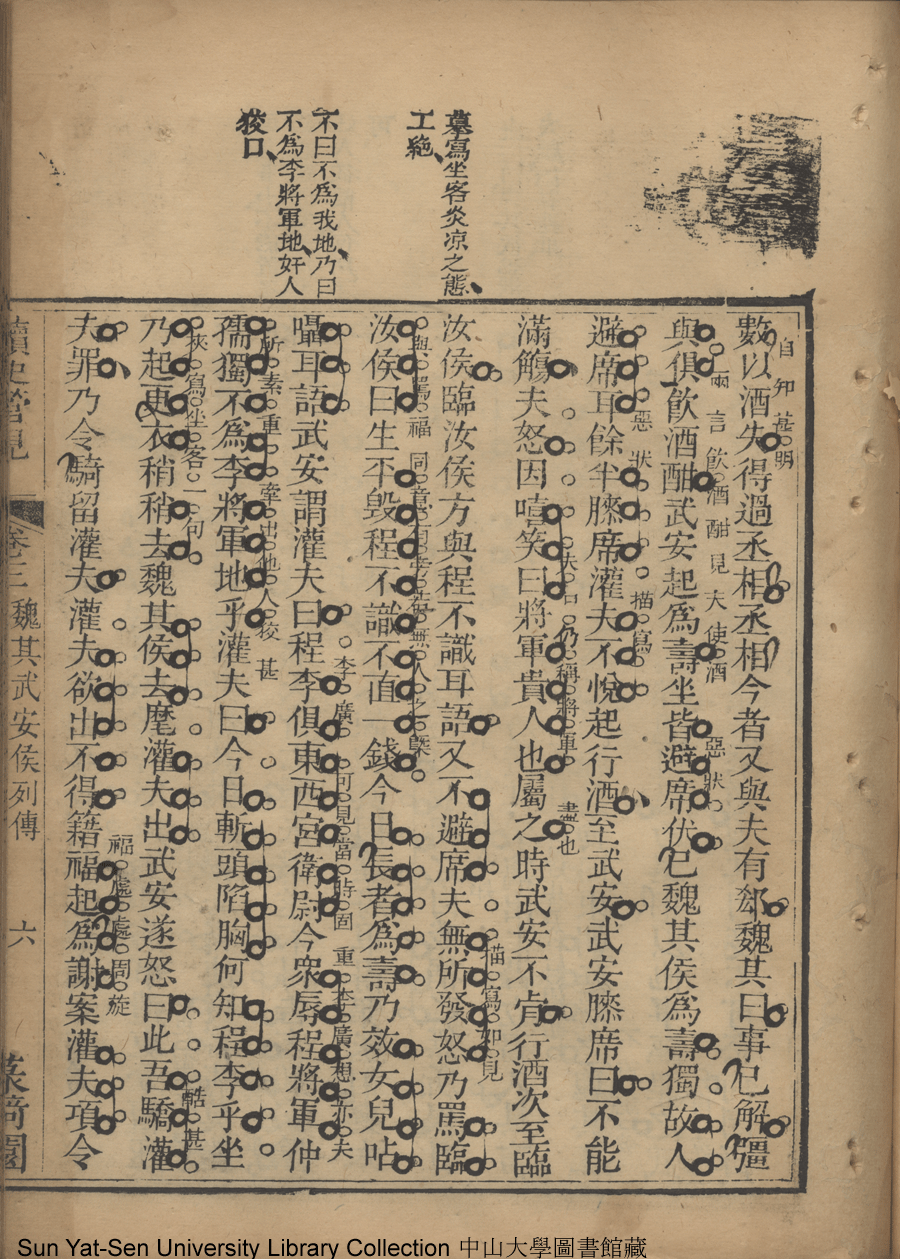 摹寫坐客炎凉之態
工絶
不曰不爲我地乃曰
不爲李將軍地奸人
狡口
數以酒失得過丞相丞相今者又與夫有郄魏其曰事已解彊
自知甚明
與俱飲酒酣武安起爲壽坐皆避席伏已魏其侯爲壽獨故人
兩言飲酒酣見夫使酒
惡狀
避席耳餘半膝席灌夫不悅起行酒至武安武安膝席曰不能
惡狀
描寫
滿觴夫怒因嘻笑曰將軍貴人也屬之時武安不肯行酒次至臨
夫口仍稱將軍
盡也
汝侯臨汝侯方與程不識耳語又不避席夫無所發怒乃罵臨
描寫如見
汝侯曰生平毀程不識不直一錢今日長者爲壽乃效女兒呫
囁耳語武安謂灌夫曰程李俱東西宮衛尉今衆辱程將軍仲
李廣
可見當時固重李廣想亦夫
孺獨不爲李將軍地乎灌夫曰今日斬頭陷胸何知程李乎坐
所素重
牽出他人狡甚
乃起更衣稍稍去魏其侯去麾灌夫出武安遂怒曰此吾驕灌
夾寫坐客一句
夫罪乃令騎留灌夫灌夫欲出不得籍福起爲謝案灌夫項令
福處處周旋
讀史管見
卷三
魏其武安侯列傳
六
Sun Yat-Sen University Library Collection 中山大學圖書館藏